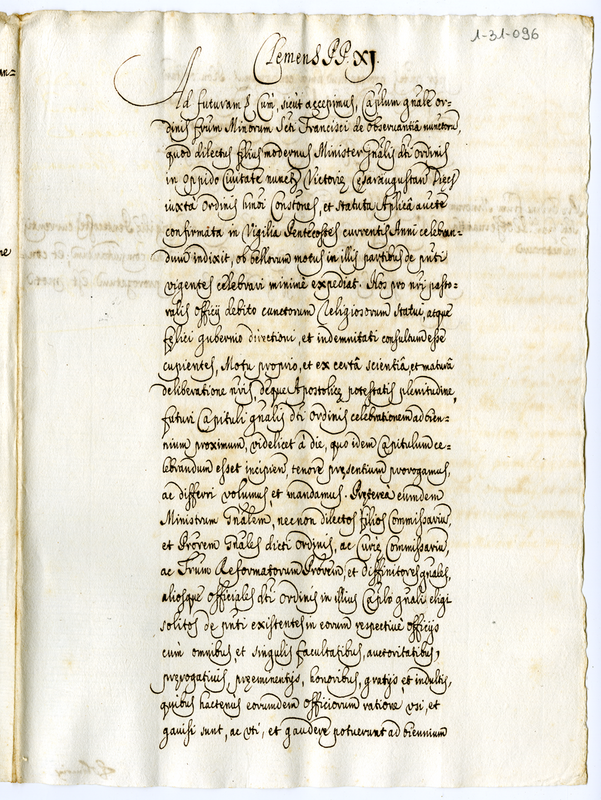 1-31-096
Clemens P P. XI.
Ad futuram & Cum, sicut accepimus, Caplum gnale or-
dinis frum Minorum Scti Francisci de Observantia nuncupn,
quod dilectus filius modernus Minister gnalis dti ordinis
in oppido Civitate nuncupn Victoriæ Cæsaraugustan Diæc
iuxta ordinis hmoi Constones, et statuta Aplica aucte
confirmata in Vigilia Pentecostes currentis Anni celebran-
dum indixit, ob bellorum motus in illis partibus de pnti
vigentes celebrari minime expediat. Nos pro nri pasto-
ralis officij debito cunctorum Religiosorum statui, atque
felici gubernio directioni, et indemnitati consultum esse
cupientes, Motu proprio, et ex certâ scientiâ, et maturâ
deliberatione nris deque Apostolicæ potestatis plenitudine,
futuri Capituli gnalis dti ordinis celebrationem ad bien-
nium proximum, videlicet â die, quo idem Capitulum ce-
lebrandum esset incipien, tenore præsentium prorogamus,
ac differri volumus, et mandamus. Præterea eiumdem
Ministrum Gnalem, necnon dilectos filios Commissariu,
et Prorem Gnales dicti ordinis, ac Curiæ Commissariu,
ac Frum Reformatorum Prorem, et diffinitores gnales,
aliosque officiales dti ordinis in illius Caplo gnali eligi
solitos de pnti existentes in eorum respective officijs
cum omnibus, et singulis facultatibus, auctoritatibus,
prærogativis, præeminentijs, honoribus, gratijs et indultis,
quibus hactenus eorumdem officiorum ratione usi, et
gavisi sunt, ac uti, et gaudere potuerunt ad biennium